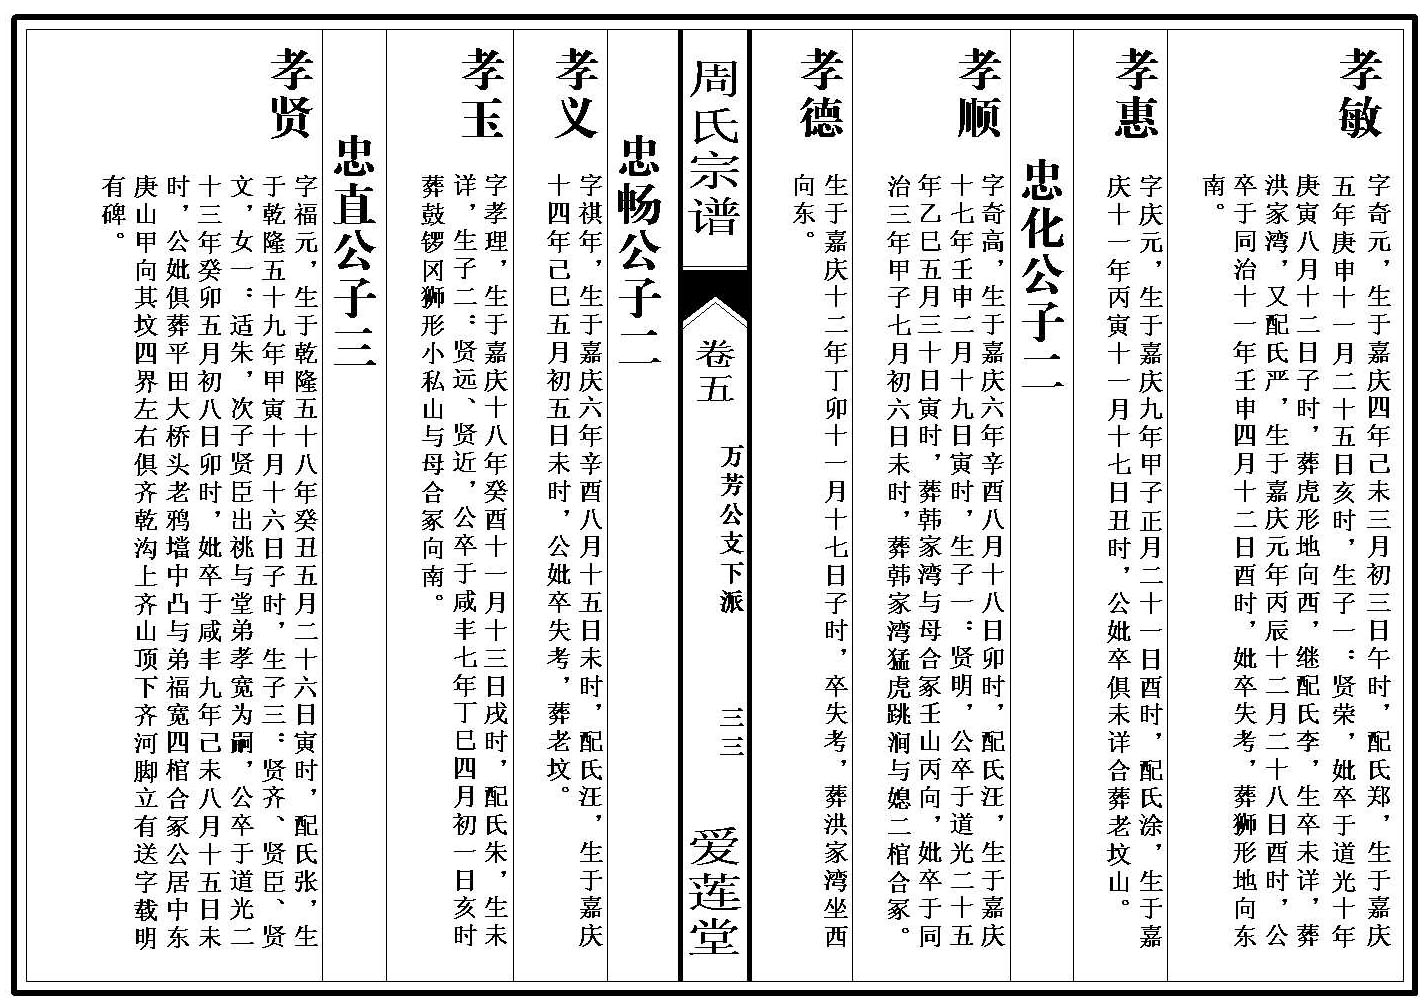 孝敏
字奇元，生于嘉庆四年己未三月初三日午时，配氏郑，生于嘉庆
五年庚申十一月二十五日亥时，生子一：贤荣，妣卒于道光十年
庚寅八月十二日子时，葬虎形地向西，继配氏李，生卒未详，葬
洪家湾，又配氏严，生于嘉庆元年丙辰十二月二十八日酉时，公
卒于同治十一年壬申四月十二日酉时，妣卒失考，葬狮形地向东
南。
孝惠
字庆元，生于嘉庆九年甲子正月二十一日酉时，配氏涂，生于嘉
庆十一年丙寅十一月十七日丑时，公妣卒俱未详合葬老坟山。
忠化公子二
孝顺
字奇高，生于嘉庆六年辛酉八月十八日卯时，配氏汪，生于嘉庆
十七年壬申二月十九日寅时，生子一：贤明，公卒于道光二十五
年乙巳五月三十日寅时，葬韩家湾与母合冢壬山丙向，妣卒于同
治三年甲子七月初六日未时，葬韩家湾猛虎跳涧与媳二棺合冢。
孝德
生于嘉庆十二年丁卯十一月十七日子时，卒失考，葬洪家湾坐西
向东。
周氏宗谱
卷五
万芳公支下派
三三
爱莲堂
忠畅公子二
孝义
字祺年，生于嘉庆六年辛酉八月十五日未时，配氏汪，生于嘉庆
十四年己巳五月初五日未时，公妣卒失考，葬老坟。
孝玉
字孝理，生于嘉庆十八年癸酉十一月十三日戌时，配氏朱，生未
详，生子二：贤远、贤近，公卒于咸丰七年丁巳四月初一日亥时
葬鼓锣冈狮形小私山与母合冢向南。
忠直公子三
孝贤
字福元，生于乾隆五十八年癸丑五月二十六日寅时，配氏张，生
于乾隆五十九年甲寅十月十六日子时，生子三：贤齐、贤臣、贤
文，女一：适朱，次子贤臣出祧与堂弟孝宽为嗣，公卒于道光二
十三年癸卯五月初八日卯时，妣卒于咸丰九年己未八月十五日未
时，公妣俱葬平田大桥头老鸦垱中凸与弟福宽四棺合冢公居中东
庚山甲向其坟四界左右俱齐乾沟上齐山顶下齐河脚立有送字载明
有碑。